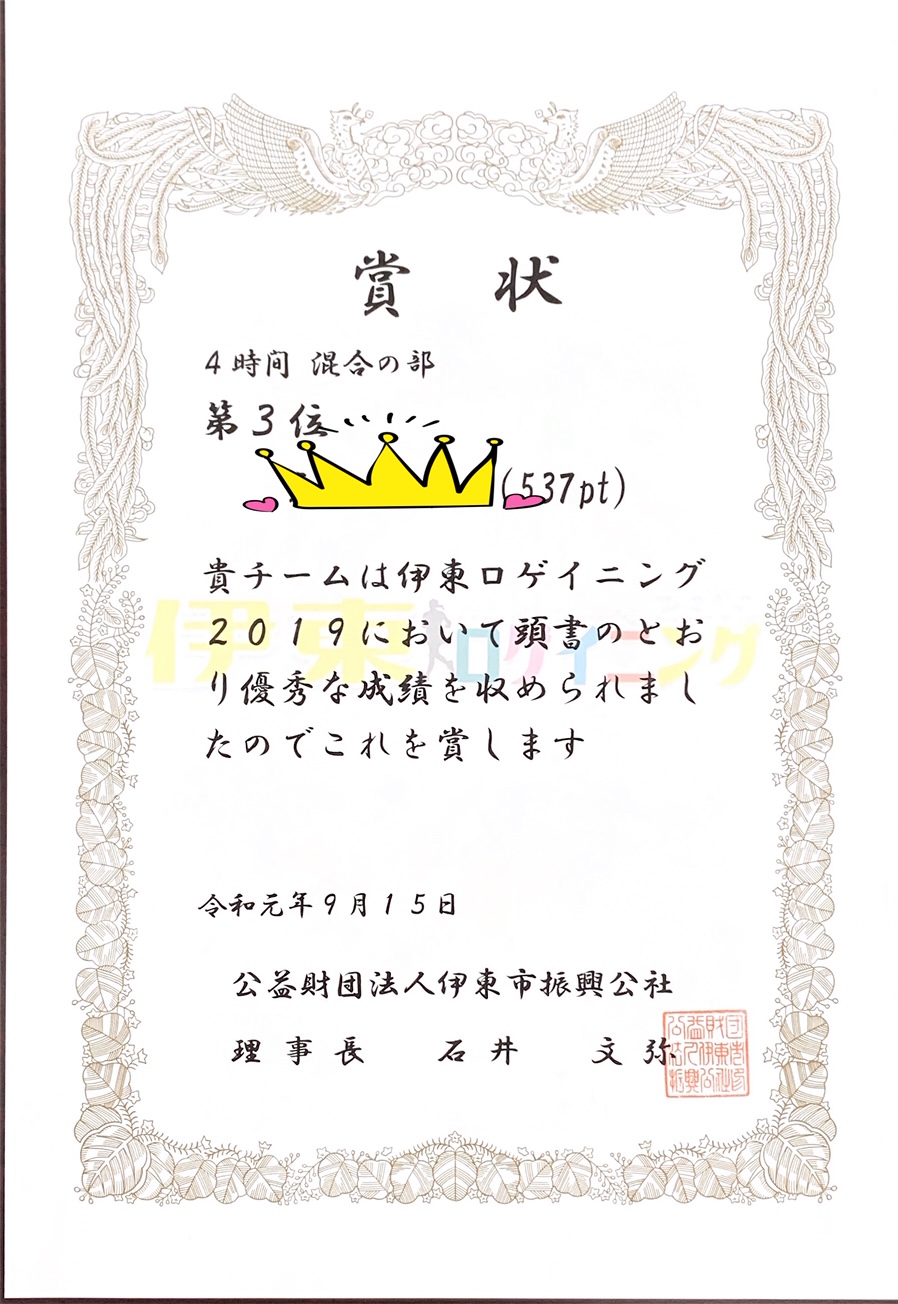 賞 状
4時間 混合の部
第3位
(537pt)
貴チームは伊東ロゲイニング
2019において頭書のとお
り優秀な成績を収められまし
たのでこれを賞します
伊東ロゲイニング
令和元年9月15日
公益財団法人伊東市振興公社
理事長 石井 文弥